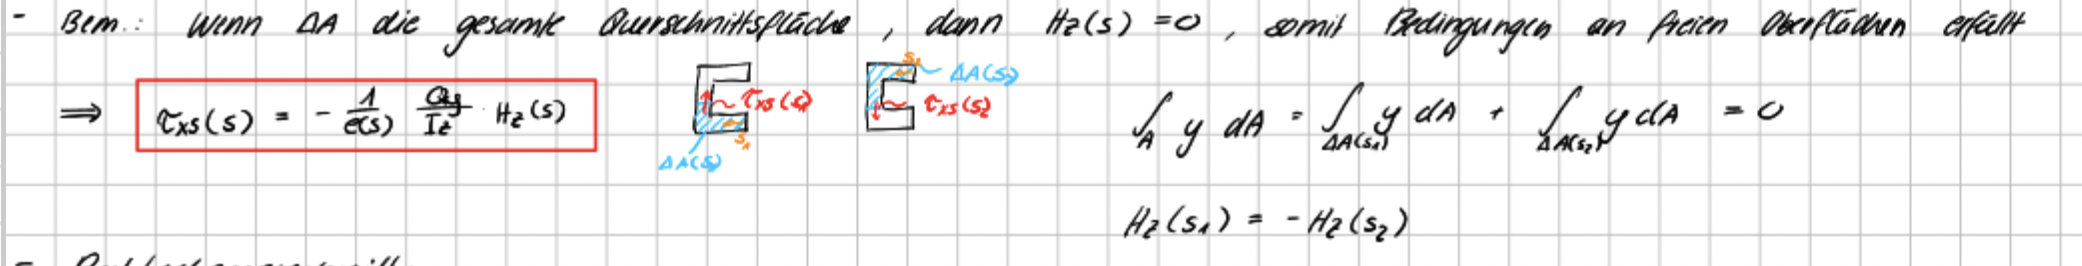 - Bem.: Wenn ΔA die gesamte Querschnittsfläche, dann Hz(s) = 0, somit Bedingungen an freien Oberflächen erfüllt
⇒ τxs(s) = - 1/e(s) Qy/Iz · Hz(s)
τxs(s)
s₁
ΔA(s)
s₂
ΔA(s)
τxs(s₂
∫A y dA = ∫ΔA(s₁) y dA + ∫ΔA(s₂) y dA = 0
Hz(s₁) = - Hz(s₂)